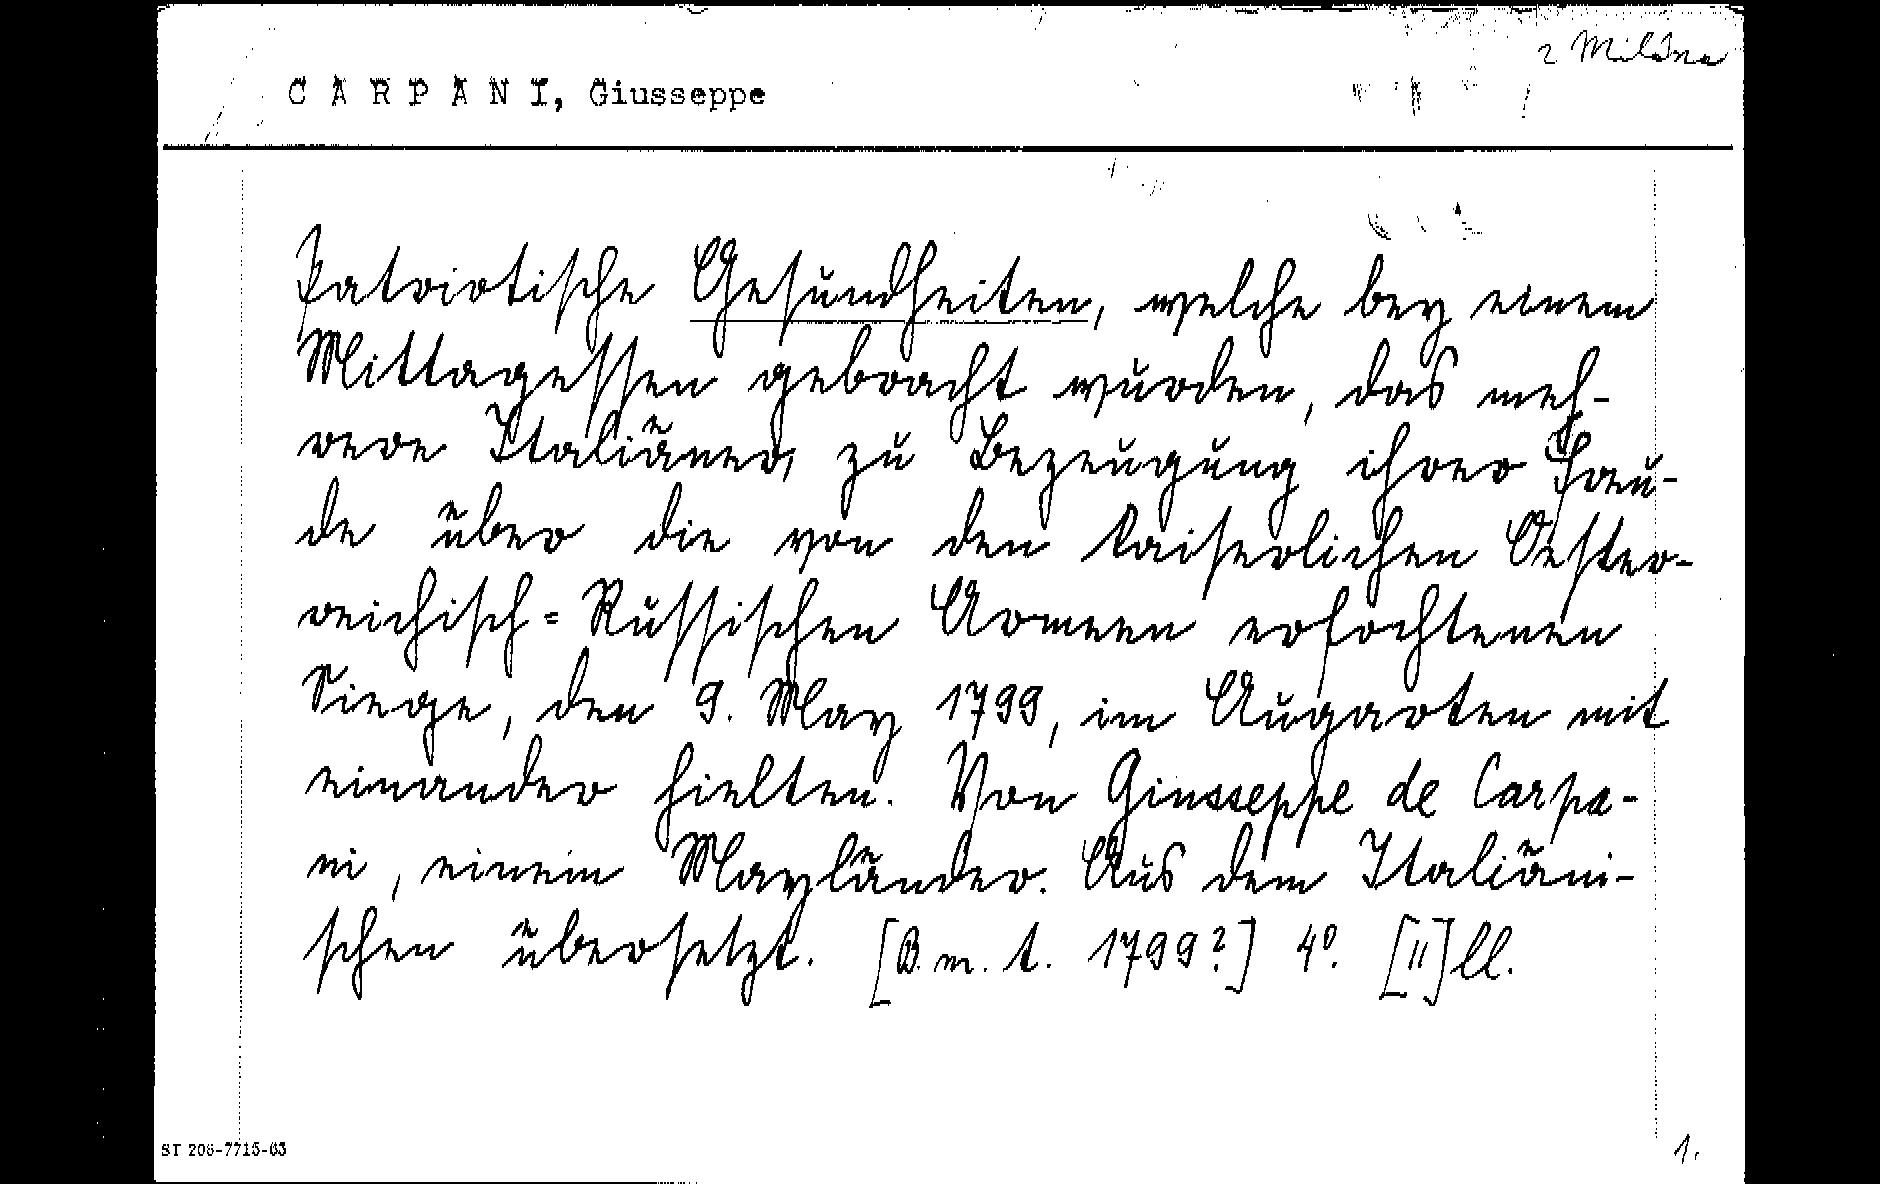 2 Mildne
C A R P A N I, Giusseppe
Patriotische Gesundheiten, welche bey einem
Mittagessen gebracht wurden, das meh-
rere Italiäner, zu Bezeugung ihrer Freu-
de über die von den kaiserlichen Oester-
reichisch=Russischen Armeen erfochtenen
Siege, den 9. May 1799, im Augarten mit
einander hielten. Von Giusseppe de Carpa-
ni, einem Mayländer. Aus dem Italiäni-
schen übersetzt. [B. m. t. 1799?] 4° [II] ll.
ST 206-7715-63
1.